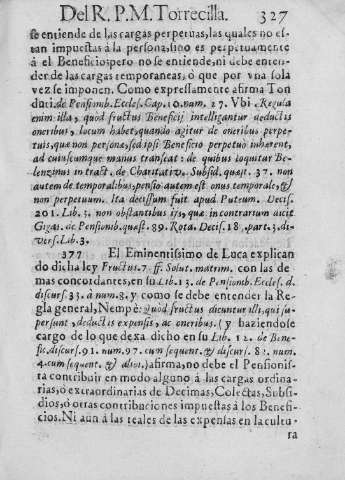 Del R. P. M. Torrecilla. 327
se entiende de las cargas perpetuas, las quales no es-
tan impuestas à la persona, sino es perpetuamente
à el Beneficio; pero no se entiende, ni debe enten-
der de las cargas temporaneas, ò que por vna sola
vez se imponen. Como expressamente afirma Ton
duti. de Pensionib. Eccles. Cap. 10. num. 27. Vbi. Regula
enim illa, quod fructus Beneficij intelligantur deductis
oneribus, locum habet, quando agitur de oneribus perpe-
tuis, quæ non personæ, sed ipsi Beneficio perpetuò inhærent,
ad cuiuscumque manus transeat: de quibus loquitur Be-
lenzinus in tract. de Charitativ. Subsid. quæst. 37. non
autem de temporalibus, pensio autem est onus temporale, &
non perpetuum. Ita decissum fuit apud Puteum. Decis.
201. Lib. 3. non obstantibus ijs, quæ in contrarium aicit
Gigas. de Pensionib. quæst. 89. Rota. Decis. 18. part. 3. di-
vers. Lib. 3.
377 El Eminentissimo de Luca explican
do dicha ley Fructus. 7. ff. Solut. matrim. con las de
mas concordantes, en su Lib. 13. de Pensionib. Eccles. d.
discurs. 33. à num. 8. y como se debe entender la Re
gla general, Nempè: Quod fructus dicuntur illi, qui su-
persunt, deductis expensis, ac oneribus. (y haziendose
cargo de lo que dexa dicho en su Lib. 12. de Bene-
fic. discurs. 91. num. 97. cum sequent. & discurs. 82. num.
4. cum sequent. & alibi.) afirma, no debe el Pensionis-
ta contribuir en modo alguno à las cargas ordina-
rias, ò extraordinarias de Decimas, Colectas, Subsi-
dios, ò otras contribuciones impuestas à los Benefi-
cios. Ni aun à las reales de las expensas en la cultu-
ra